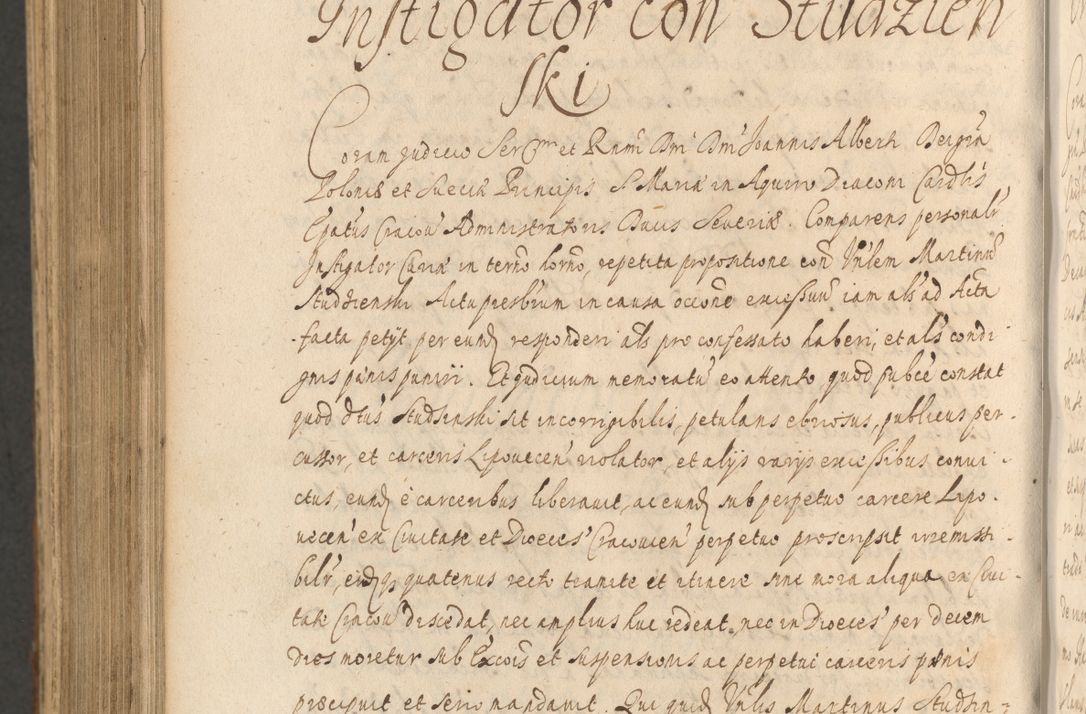 Instigator con Studzien
ski
Coram judicio Sermi et Rnmi Dni Dni Joannis Alberti Dei gra
Poloniæ et Sueciæ Principis S. Mariæ in Aquiro Diaconi Cardlis
Epatus Cracou Administratoris Ducis Seueriæ. Comparens personalr
Instigator Curiæ in termo horno, repetita propositione con Vnlem Martinu
Studzienski Actu presbrum in causa occone excessuu iam als ad Acta
facta petyt per eund responderi als pro confessato haberi, et als condi
gnis pænis puniri. Et judicium memoratu eo attento quod pubce constat
quod dtus Studzinski sit incorrigibilis, petulans ebriosus, publicus per-
cussor, et carceris Lipouecen violator, et alijs varijs excessibus convi-
ctus, eund è carceribus liberauit, ac eund sub perpetuo carcere Lipo-
uecen ex Ciuitate et Dioeces Cracouien perpetuo proscripsit irremissi-
bilr, eidq quatenus recto tramite et itinere sine mora aliqua ex Ciui-
tate Cracou discedat, nec amplius huc redeat, nec in Dioeces per decem
dies moretur sub Excois et suspensionis ac perpetui carceris pænis
præcipuit et serio mandauit. Qui quid Vnlis Martinus Studzin-